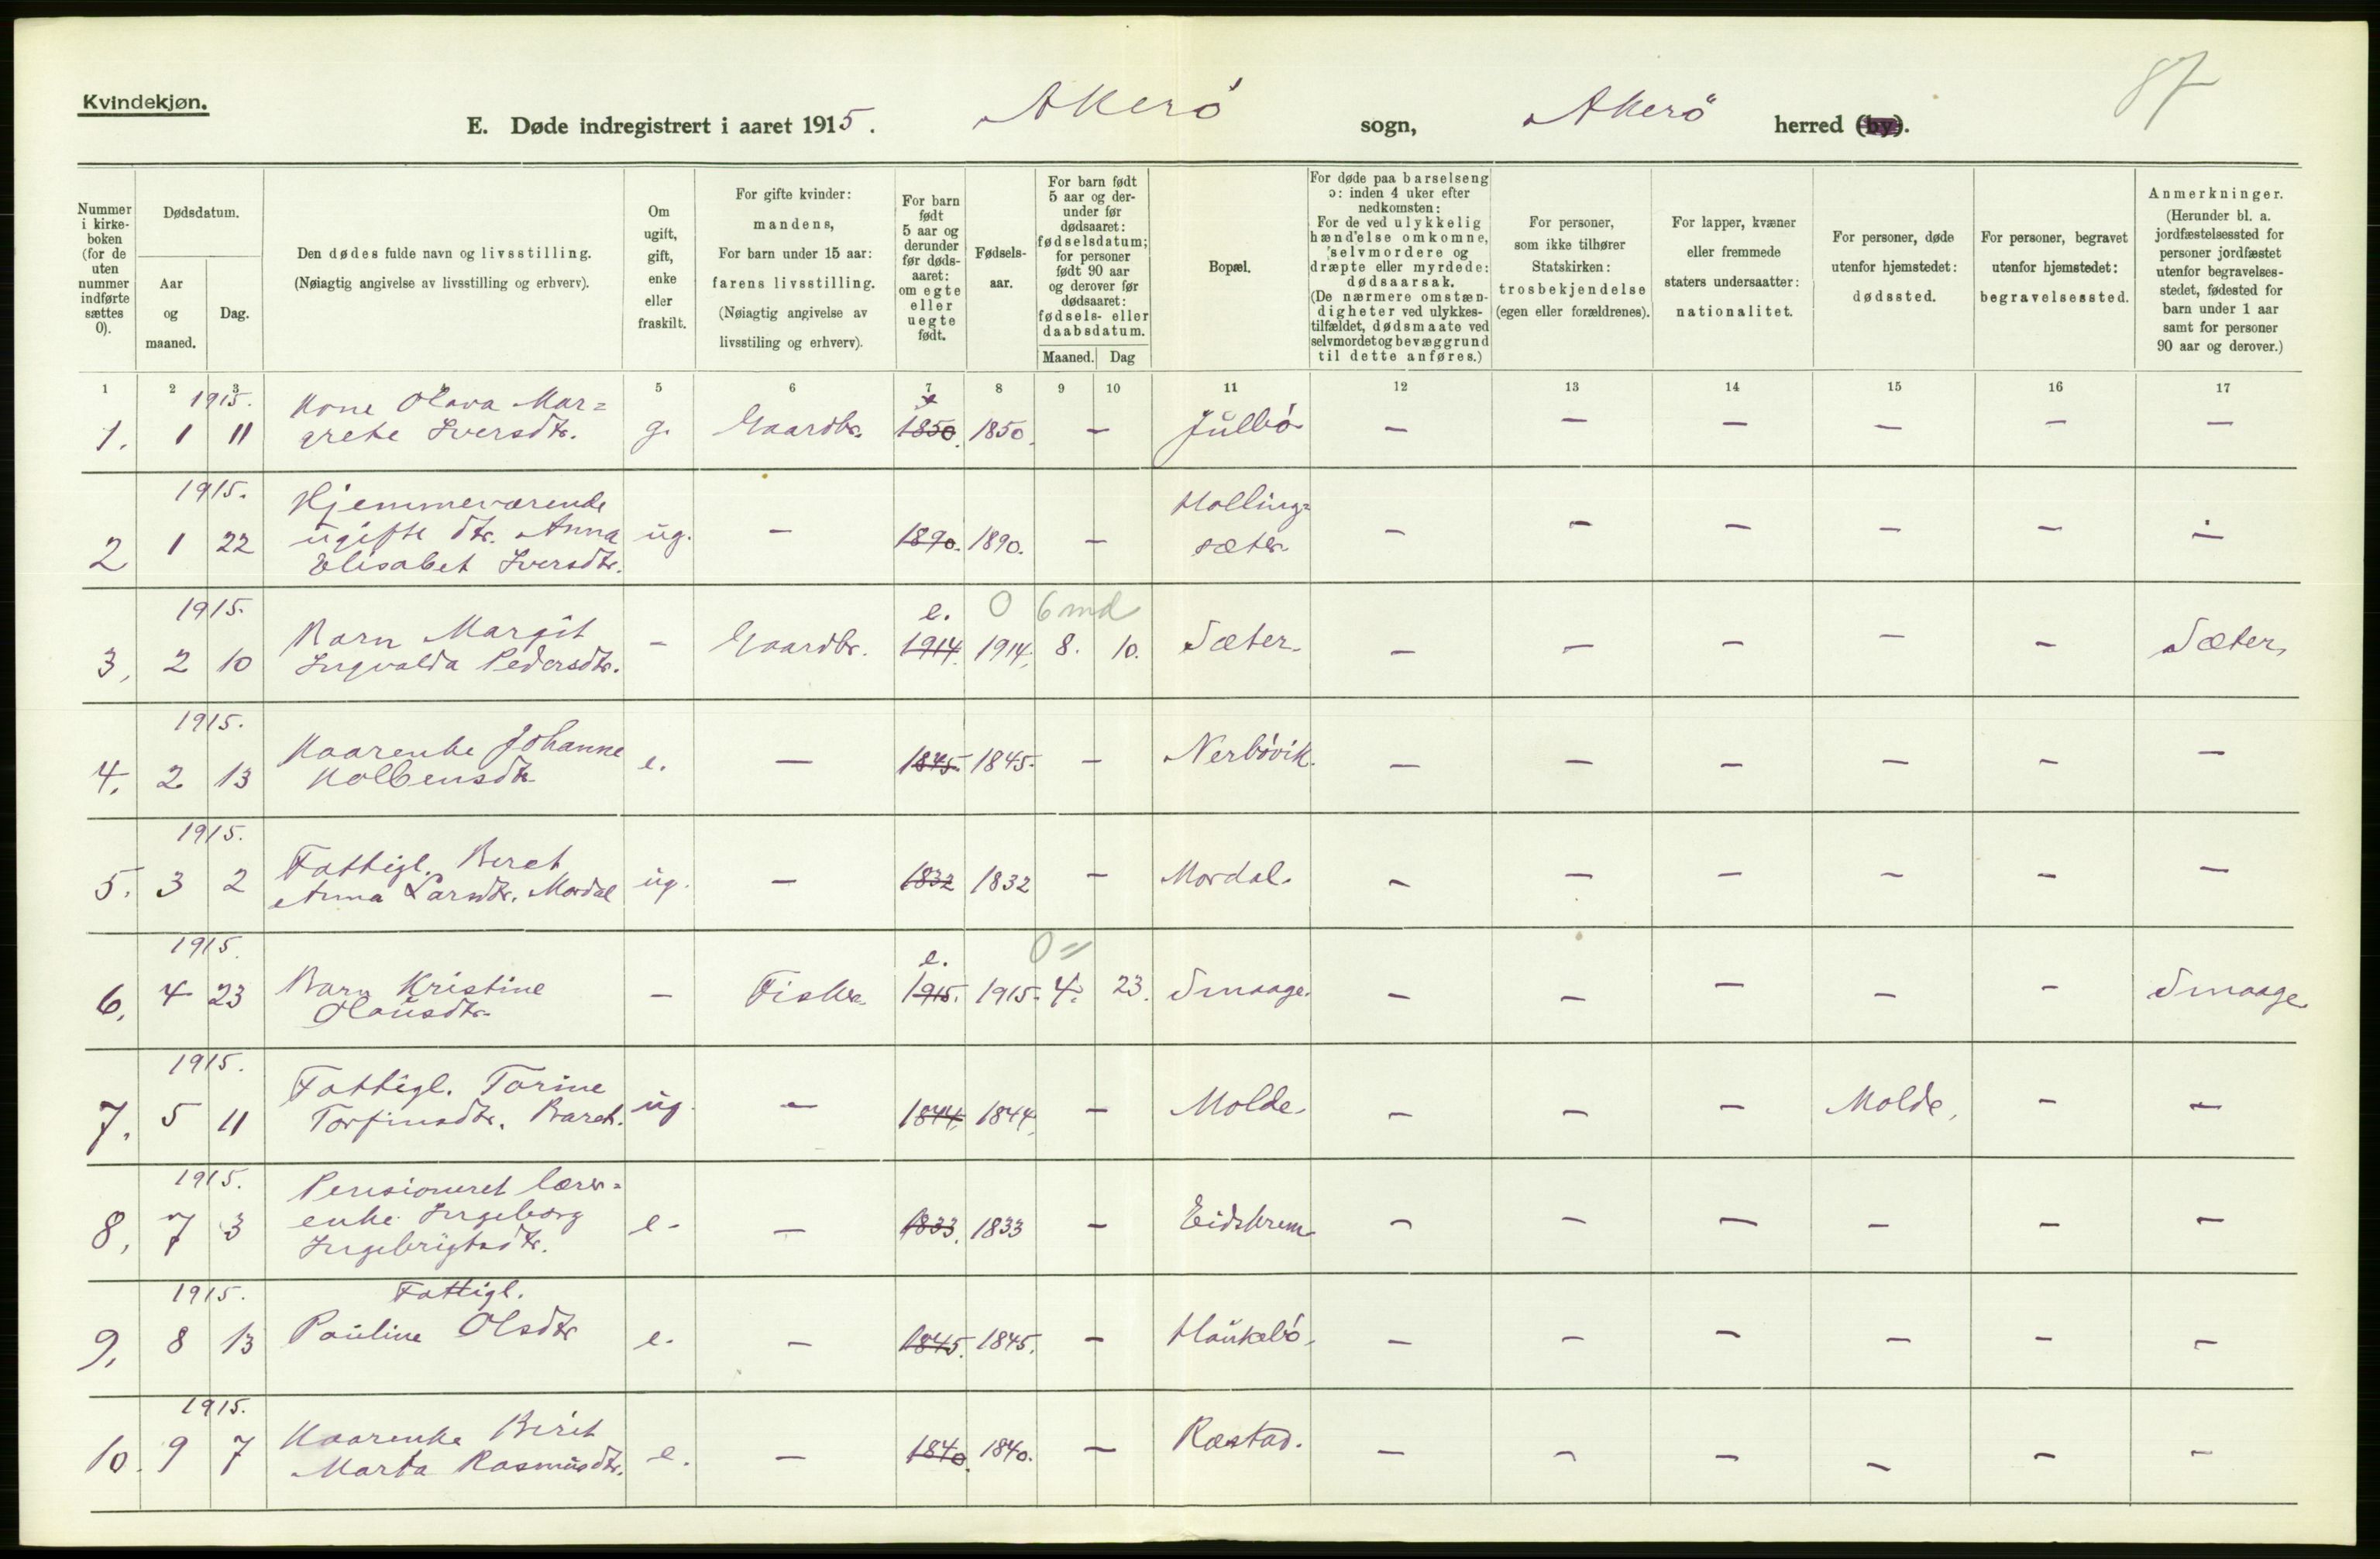 Kvindekjøn.
87
E. Døde indregistrert i aaret 1915. Akerö sogn, Akerö herred (by).
Nummer i kirke-boken (for de uten nummer indførte sættes 0).
Dødsdatum.
Aar og maaned.
Dag.
Den dødes fulde navn og livsstilling.
(Nøiagtig angivelse av livsstilling og erhverv).
Om ugift, gift, enke eller fraskilt.
For gifte kvinder:
mandens,
For barn under 15 aar:
farens livsstilling.
(Nøiagtig angivelse av
livsstiling og erhverv).
For barn født 5 aar og derunder før døds-aaret: om egte eller uegte født.
Fødsels-aar.
For barn født 5 aar og der-under før dødsaaret: fødselsdatum; for personer født 90 aar og derover før dødsaaret: fødsels- eller daabsdatum.
Maaned. Dag
Bopæl.
For døde paa barselseng ɔ: inden 4 uker efter nedkomsten:
For de ved ulykkelig hændelse omkomne, selvmordere og dræpte eller myrdede: dødsaarsak.
(De nærmere omstæn-digheter ved ulykkes-tilfældet, dødsmaate ved selvmordet og bevæggrund til dette anføres.)
For personer, som ikke tilhører Statskirken: trosbekjendelse (egen eller forældrenes).
For lapper, kvæner eller fremmede staters undersaatter: nationalitet.
For personer, døde utenfor hjemstedet: dødssted.
For personer, begravet utenfor hjemstedet: begravelsessted.
Anmerkninger.
(Herunder bl. a. jordfæstelsessted for personer jordfæstet utenfor begravelses-stedet, fødested for barn under 1 aar samt for personer 90 aar og derover.)
1 2 3 5 6 7 8 9 10 11 12 13 14 15 16 17
1915. Kone Olava Mar=
1. 1 11 grete Iversdtr. g. Gaardbr. 1850. 1850. – Julbö – – – – – –
1915. Hjemmeværende
ugifte dtr. Anna ug. – 1890. 1890. – Holling=
2 1 22 Elisabet Iversdtr. sæter – – – – – –
1915. e. 0 6 md
Barn Margit
3, 2 10 Ingvalda Pedersdtr. – Gaardbr. 1914. 1914. 8. 10. Sæter. – – – – – Sæter,
1915. Kaarenke Johanne
4. 2 13 Kolbensdtr. e. – 1845. 1845. – Nerbövik. – – – – – –
1915. Fattigl. Beret
5. 3 2 Anna Larsdtr. Mordal ug. – 1832 1832 – Mordal. – – – – – –
1915. e. 0 =
Barn Kristine
6, 4 23 Olausdtr. – Fisker 1915. 1915. 4. 23. Smaage. – – – – – Smaage
1915. Fattigl. Torine
7. 5 11 Torfinsdtr. ug. – 1844. 1844. – Molde. – – – Molde, – –
1915. Pensioneret lærer=
8, 7 3 enke Ingeborg e. – 1833. 1833 – Eidskrem – – – – – –
Ingebrigtsdtr.
1915. Fattigl.
9, 8 13 Pauline Olsdtr e. – 1845. 1845. – Haukebö. – – – – – –
1915. Kaarenke Berit
10. 9 7 Marta Rasmusdtr. e. – 1840. 1840. – Rastad. – – – – – –